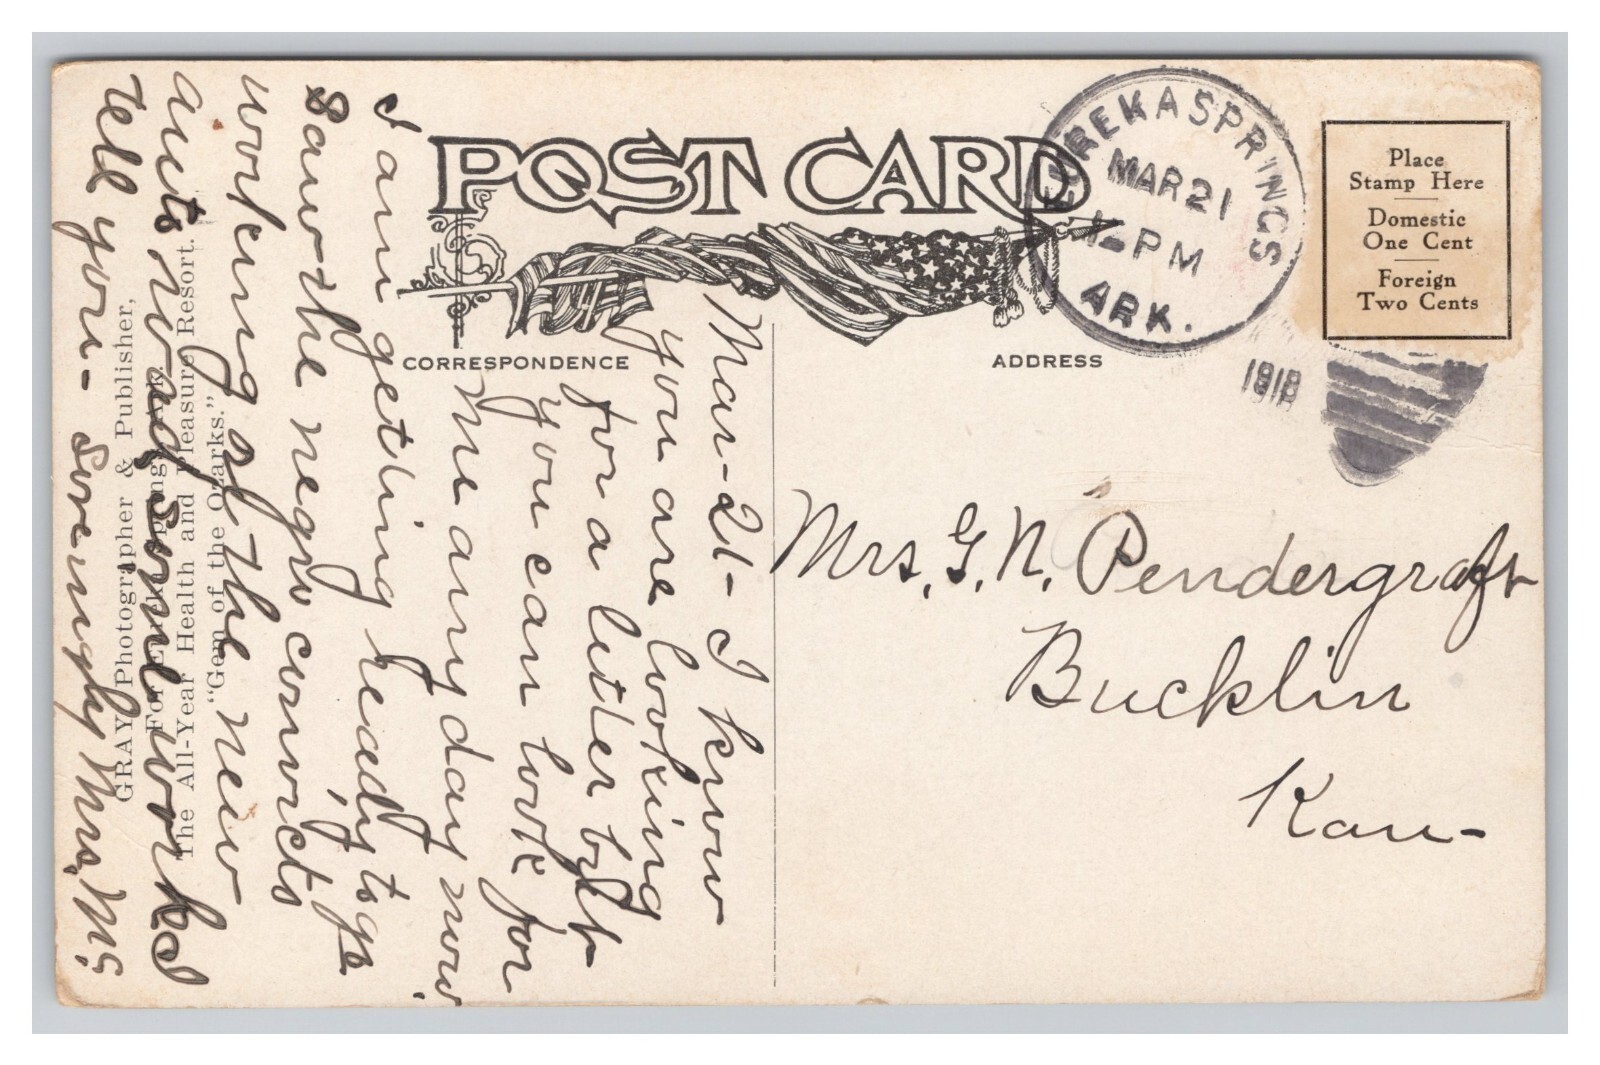 POST CARD
CORRESPONDENCE
ADDRESS
EUREKA SPRINGS
MAR 21
12 PM
ARK.
1918
Place
Stamp Here
Domestic
One Cent
Foreign
Two Cents
Mrs. G. N. Pendergraft
Bucklin
Kan-
Mar-21- I know
you are looking
for a letter but
you can look for
me any day now.
I am getting ready to go.
Saw the negro convicts
working at the new
auto road, some work I
tell you- Lovingly Mrs. Mc
GRAY Photographer & Publisher,
Eureka Springs, Ark.
The All-Year Health and Pleasure Resort.
"Gem of the Ozarks."